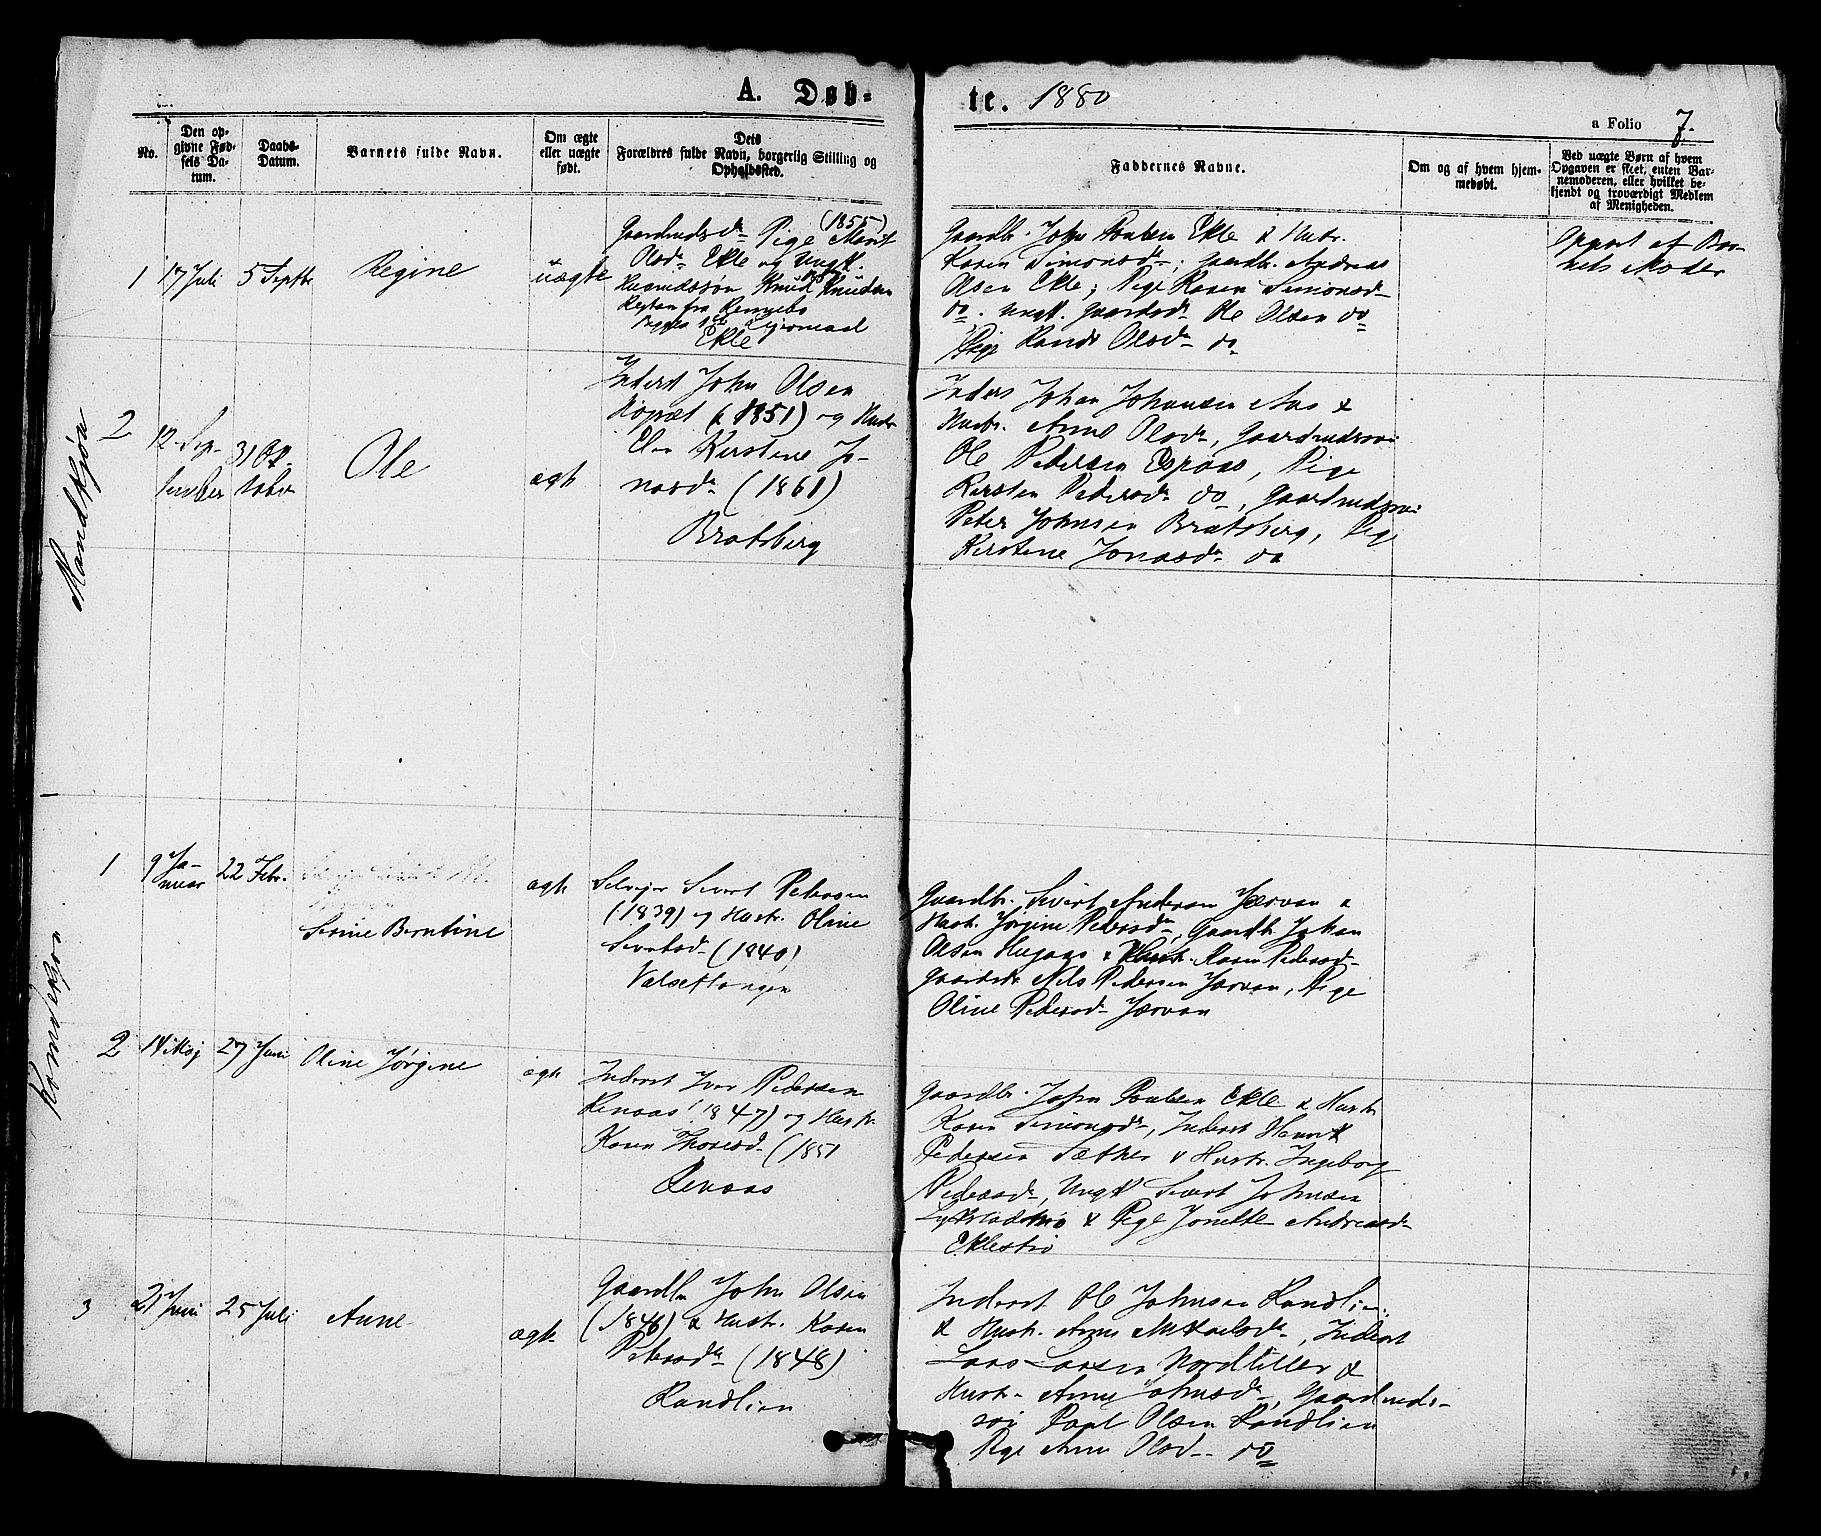 A. Døb-
te. 1880
a Folio 7.
No.
Den op-
givne Fød-
sels Da-
tum.
Daabs-
Datum.
Barnets fulde Navn.
Om ægte
eller uægte
født.
Dets
Forældres fulde Navn, borgerlig Stilling og
Opholdssted.
Faddernes Navne.
Om og af hvem hjem-
medøbt.
Ved uægte Børn af hvem
Opgaven er skeet, enten Bar-
nemoderen, eller hvilket be-
kjendt og troværdigt Medlem
af Menigheden.
Mandkjøn
1
17 Juli
5 Septbr
Regine
uægte
(1855)
Gaardmdsdr Pige Marit
Olsdr Ekle og Ungk.
Knud Knudsen
fra Rennebo
Leiermaal
Ekle
Gaardbr. John Paulsen Ekle & Hustr.
Karen Simonsdr; Gaardbr. Andreas
Olsen Ekle; Pige Karen Simonsd
do. Ungk. Gaardsdr Ole Olsen do
Pige Randi Olsdr do
Opgivet af Bar-
nets Moder
2
12 Sep-
tember
31 Ok
tober
Ole
ægte
Inderst John Olsen
(1851) og Hustr
Elen Kirstine Jo-
nasdr (1861)
Bratsberg
Inders Johan Johansen Aas &
Hustr. Anne Olsdr, Gaardmdssøn
Ole Pedersen Espaas, Pige
Kirsten Pedersdr do, Gaardmdssøn
Peter Johnsen Bratsberg, Pige
Kirstine Jonasdr do
Kvindekjøn
1
9 Ja-
nuar
22 Febr.
Sirine Berntine
ægte
Selveier Sivert Petersen
(1839) og Hustr. Oline
Sivertsd (1840)
Valsettangen
Gaardbr. Sivert Andersen Jærvan &
Hustr. Jørgine Pedersdr, Gaardbr Johan
Olsen Hegaas & Hustr. Karen Pedersd
Nils Pedersen Jærvan, Pige
Oline Pedersd Jærvan
2
14 Maj
27 Juni
Oline Jørgine
ægte
Inderst Iver Pedersen
Renaas (1847) og Hustr.
Karen Thoresd. (1851
Renaas
Gaardbr. John Paulsen Ekle & Hustr
Karen Simonsdr, Inderst Henrik
Pedersen Sæther & Hustr. Ingeborg
Pedersdr, Ungk Sivert Johnsen
& Pige Jonette Andreasdr
Eklestrø
3
21 Juni
25 Juli
Anne
ægte
Gaardbr John Olsen
(1846) & Hustr. Karen
Petersdr (1848)
Randlien
Inderst Ole Johnsen Randlien
& Hustr. Anne Mikkelsdr, Inderst
Lars Larsen Nordtiller &
Hustr. Anne Johnsdr, Gaardmds-
søn Paul Olsen Randlien
Pige Anne Olsd. do